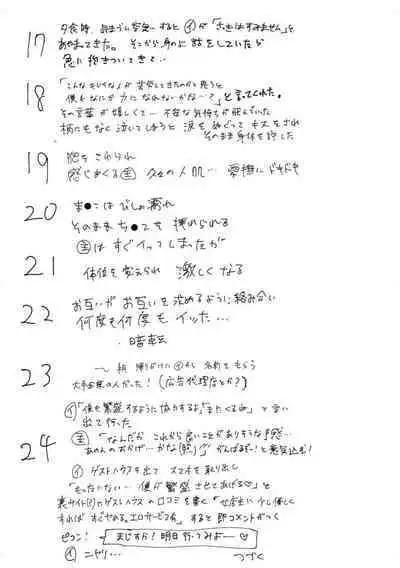 17 夕食時、空気 すると ㋑が「先ほどはすみません」と
あやまってきた。そこから身の上話をしていたが
急に抱きついてきて…
18 「こんな 人が苦労してきたのかと思うと
僕もなにか力になれないかな…?」と言ってくれた。
その言葉が嬉しくて… 不安な気持ちが飛んでいた
柄にもなく泣いてしまうと 涙をぬぐって キスをされ
そのまま身体を許した
19 胸をさわられ
感じまくる㊀主 久々の人肌… 愛撫にドキドキ
20 ま●こはびしょ濡れ
そのままち●こを挿れられる
主はすぐイってしまったが
21 体位を変えられ 激しくなる
22 お互いがお互いを求めるように絡み合い
何度も何度もイッた…
・暗転
23 〜朝 帰りがけに㋑から名刺をもらう
大手企業の人だった!(広告代理店とか?)
㋑「僕も繁盛するように協力するよ」「またくるね」と言い
出て行った
24 主「なんだか これから良いことがありそうな予感…
あの人のおかげ…かな(照)」がんばるぞー!と意気込む!
㋑ゲストハウスを出て スマホを取り出し
「もったいない… 僕が繁盛させてあげる♡」と
裏サイト(?)のゲストハウスの口コミを書く「女店主に少し優しく
すれば すぐヤれる。エロサービス有」すると即コメントがつく
ピコン! まじすか!明日行ってみよー♡
㋑ニヤリ… つづく